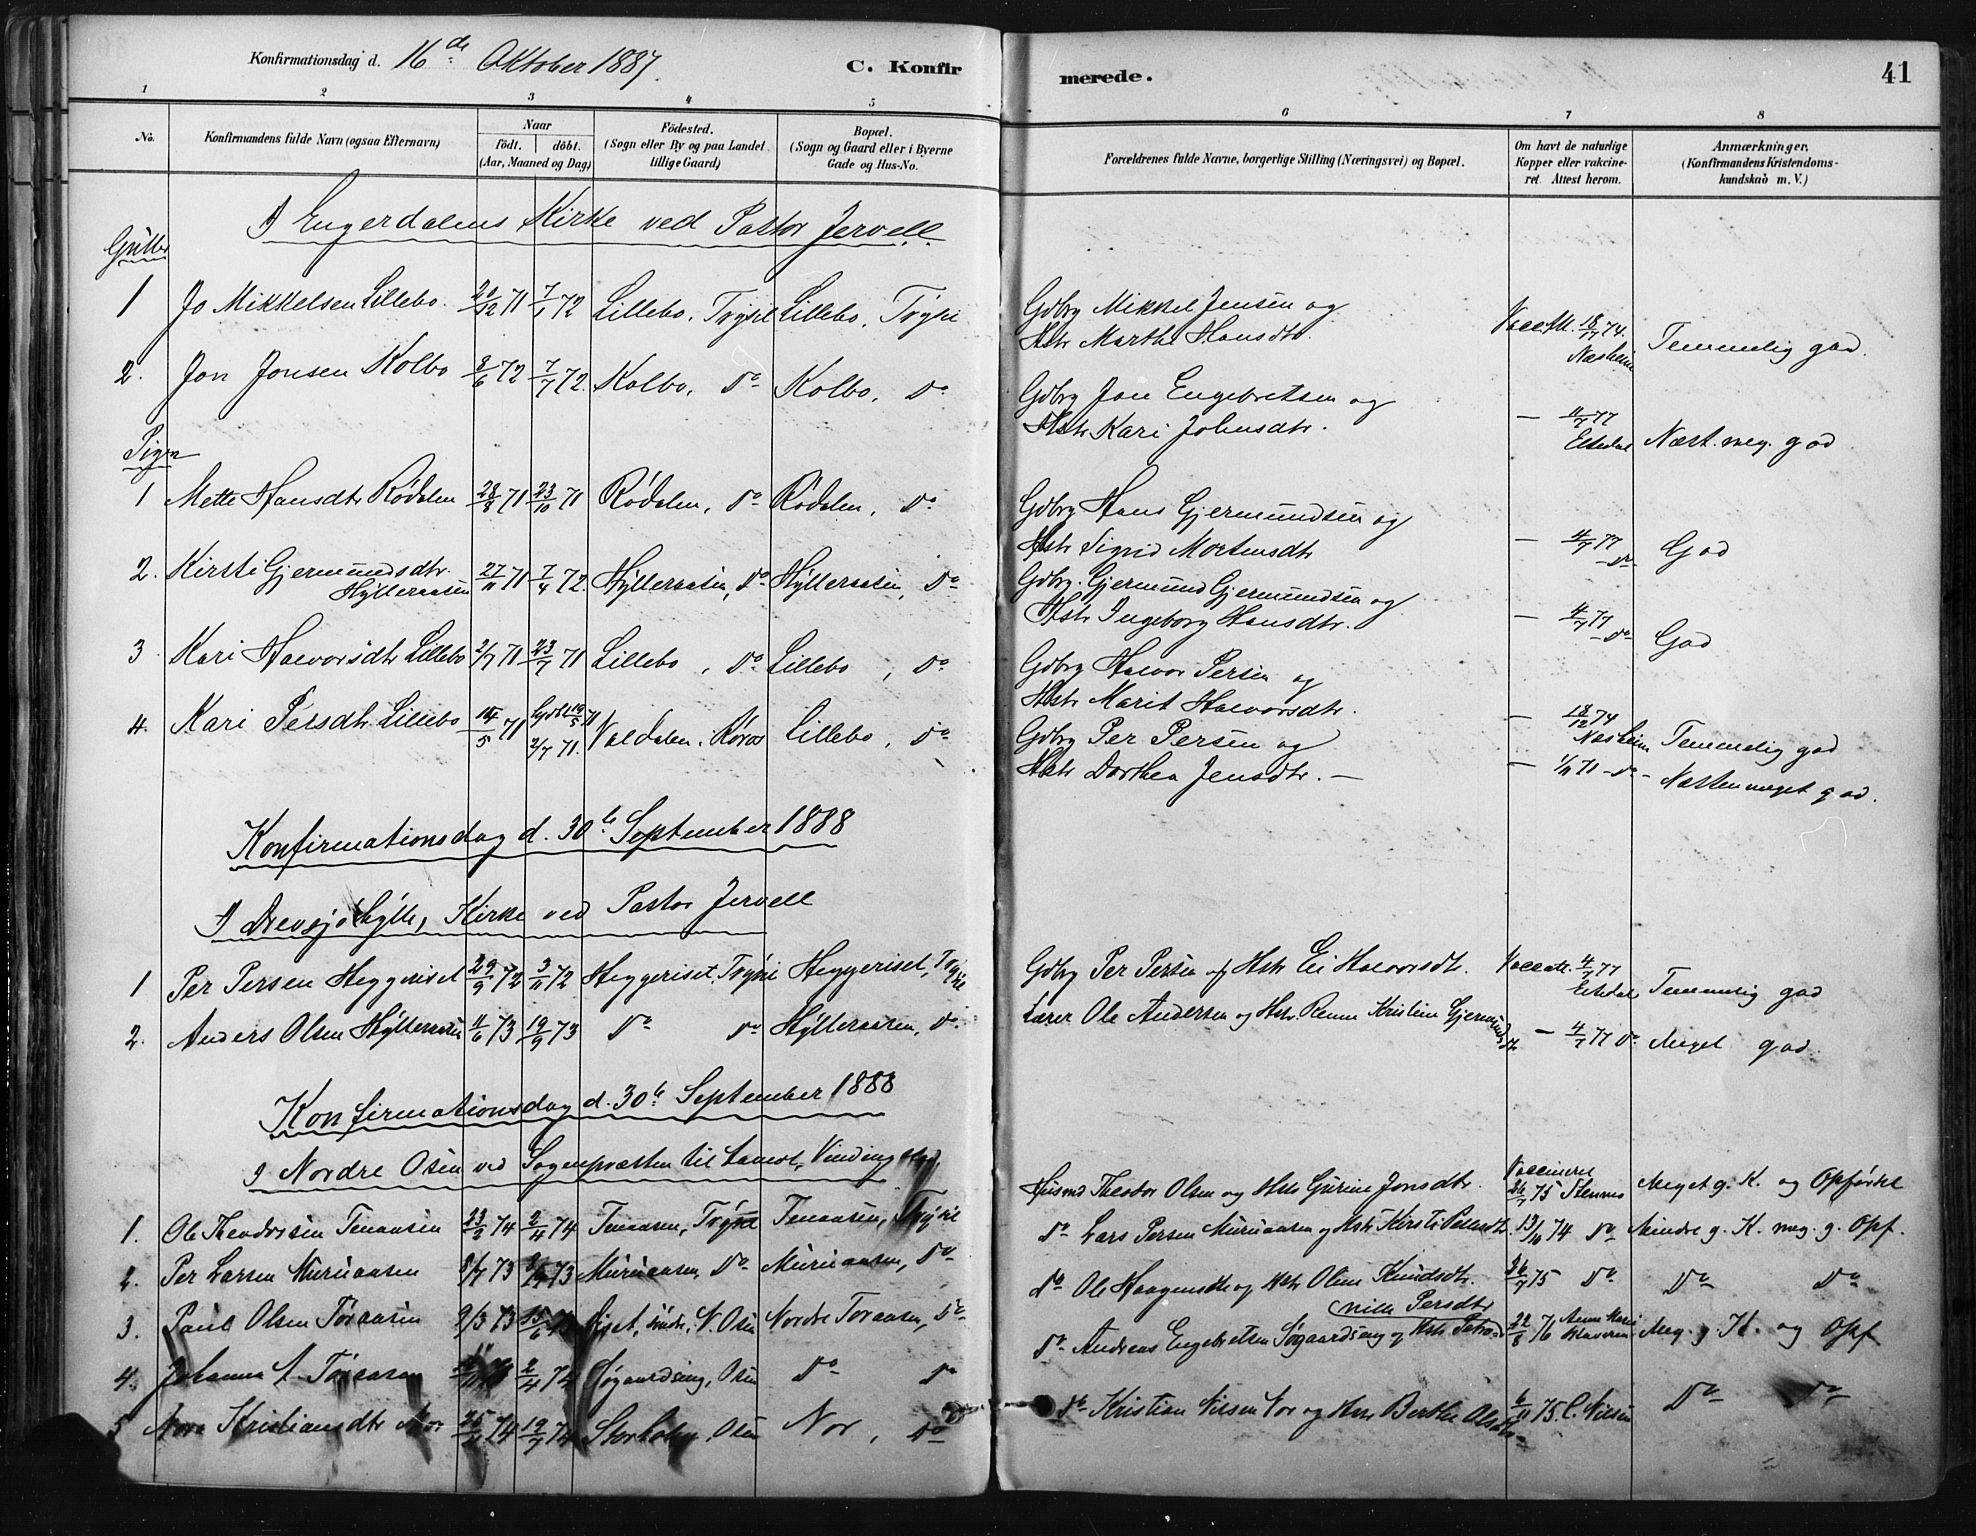 Konfirmationsdag d. 16de Oktober 1887. C. Konfirmerede. 41
1 2 3 4 5 6 7 8
No. Konfirmandens fulde Navn (ogsaa Efternavn) Naar födt. döbt. (Aar, Maaned og Dag) Födested. (Sogn eller By og paa Landet tillige Gaard) Bopæl. (Sogn og Gaard eller i Byerne Gade og Hus-No. Forældrenes fulde Navne, borgerlige Stilling (Næringsvei) og Bopæl. Om havt de naturlige Kopper eller vakcineret. Attest herom. Anmærkninger. (Konfirmandens Kristendomskundskab m. V.)
I Engerdalens Kirke ved Pastor Jervell.
Gutter
1 Jo Mikkelsen Lillebo. /12 71 7/1 72 Lillebo, Trysil Lillebo, Trysil Gdbrg Mikkel Jensen og Hstr Marthe Hansdtr. 74. Næsheim Temmelig god.
2. Jon Jonsen Kolbo /6 72 7/7 72. Kolbo, Do Kolbo, Do Gdbrg Jon Engebretsen og Hstr Kari Johnsdtr. — 4/7 77 Elsedal Næst. meg. god
Piger
1 Mette Hansdtr Rödalen 28/8 71 23/10 71 Rödalen, Do Rödalen, Do Gdbrg Hans Gjermundsen og Hstr Sigrid Mortensdtr — 4/7 77 -do- God
2. Kirsti Gjermundsdtr. Hylleraasen 27/11 71 7/4 72. Hylleraasen, Do Hylleraasen, Do Gdbrg. Gjermund Gjermundsen og Hstr Ingeborg Hansdtr. — 4/7 77 -do- God
3 Kari Halvorsdtr Lillebo 2/7 71 23/7 71 Lillebo, Do Lillebo, Do Gdbrg Halvor Persen og Hstr Marit Halvorsdtr. — 18/12 74 Næsheim Temmelig god
4. Kari Persdtr. Lillebo /5 71 2/7 71. Valdalen, Röros Lillebo, Do Gdbrg Per Persen og Hstr Dorthea Jensdtr. — — 71 -do- Næsten meget god.
Konfirmationsdag d. 30te September 1888
I Drevsjöhytte, Kirke ved Pastor Jervell
1 Per Persen Heggeriset 29/9 72 3/11 72 Heggeriset, Trysil Heggeriset, Trysil Gdbrg Per Persen og Hstr Eli Halvorsdtr. 4/7 77 Elsedal Temmelig god
2. Anders Olsen Hylleraasen /6 73 19/9 73 Do Do Hylleraasen, Do Lærer Ole Andersen og Hstr. Kristine Gjermundsdtr — 4/7 77 Do Meget god.
Konfirmationsdag d. 30te September 1888
I Nordre Osen ved Sognepræsten til Aamot,
1. Ole Theodorsen Tenaasen 23/2 74 2/4 74 Tenaasen, Trysil Tenaasen, Trysil Husmd Theodor Olsen og Hstr Gurine Jonsdtr. Vaccineret 26/7 75 Stenmo Meget g. K. og Opförsel
2. Per Larsen Muruaasen 8/7 73 73 Muruaasen, Do Muruaasen, Do Do Lars Persen Muruaasen og Hstr Kirsti 13/10 74 Do Mindre g. K. meg. g. Opf.
3. Paul Olsen Töraasen 9/3 73 15/6 73 N. Osen Nordre Töraasen, Do Do Ole og Hstr Oline Knudsdtr. 26/7 75 Do Do Do
4. Johanne A. Töraasen 2/4 74 Sögaardseng, Osen Do Do Do Andreas Engebretsen Sögaardseng og Hstr Petronille Persdtr 22/8 76 Meg. g. K. og Opf
5 Nora Kristiansdtr Nor 25/ 74 19/7 74 Osen Nor, Do Do Kristian Nilsen Nor og Hstr Berthe Olsdtr 6/11 75. C. Nilsen Do Do